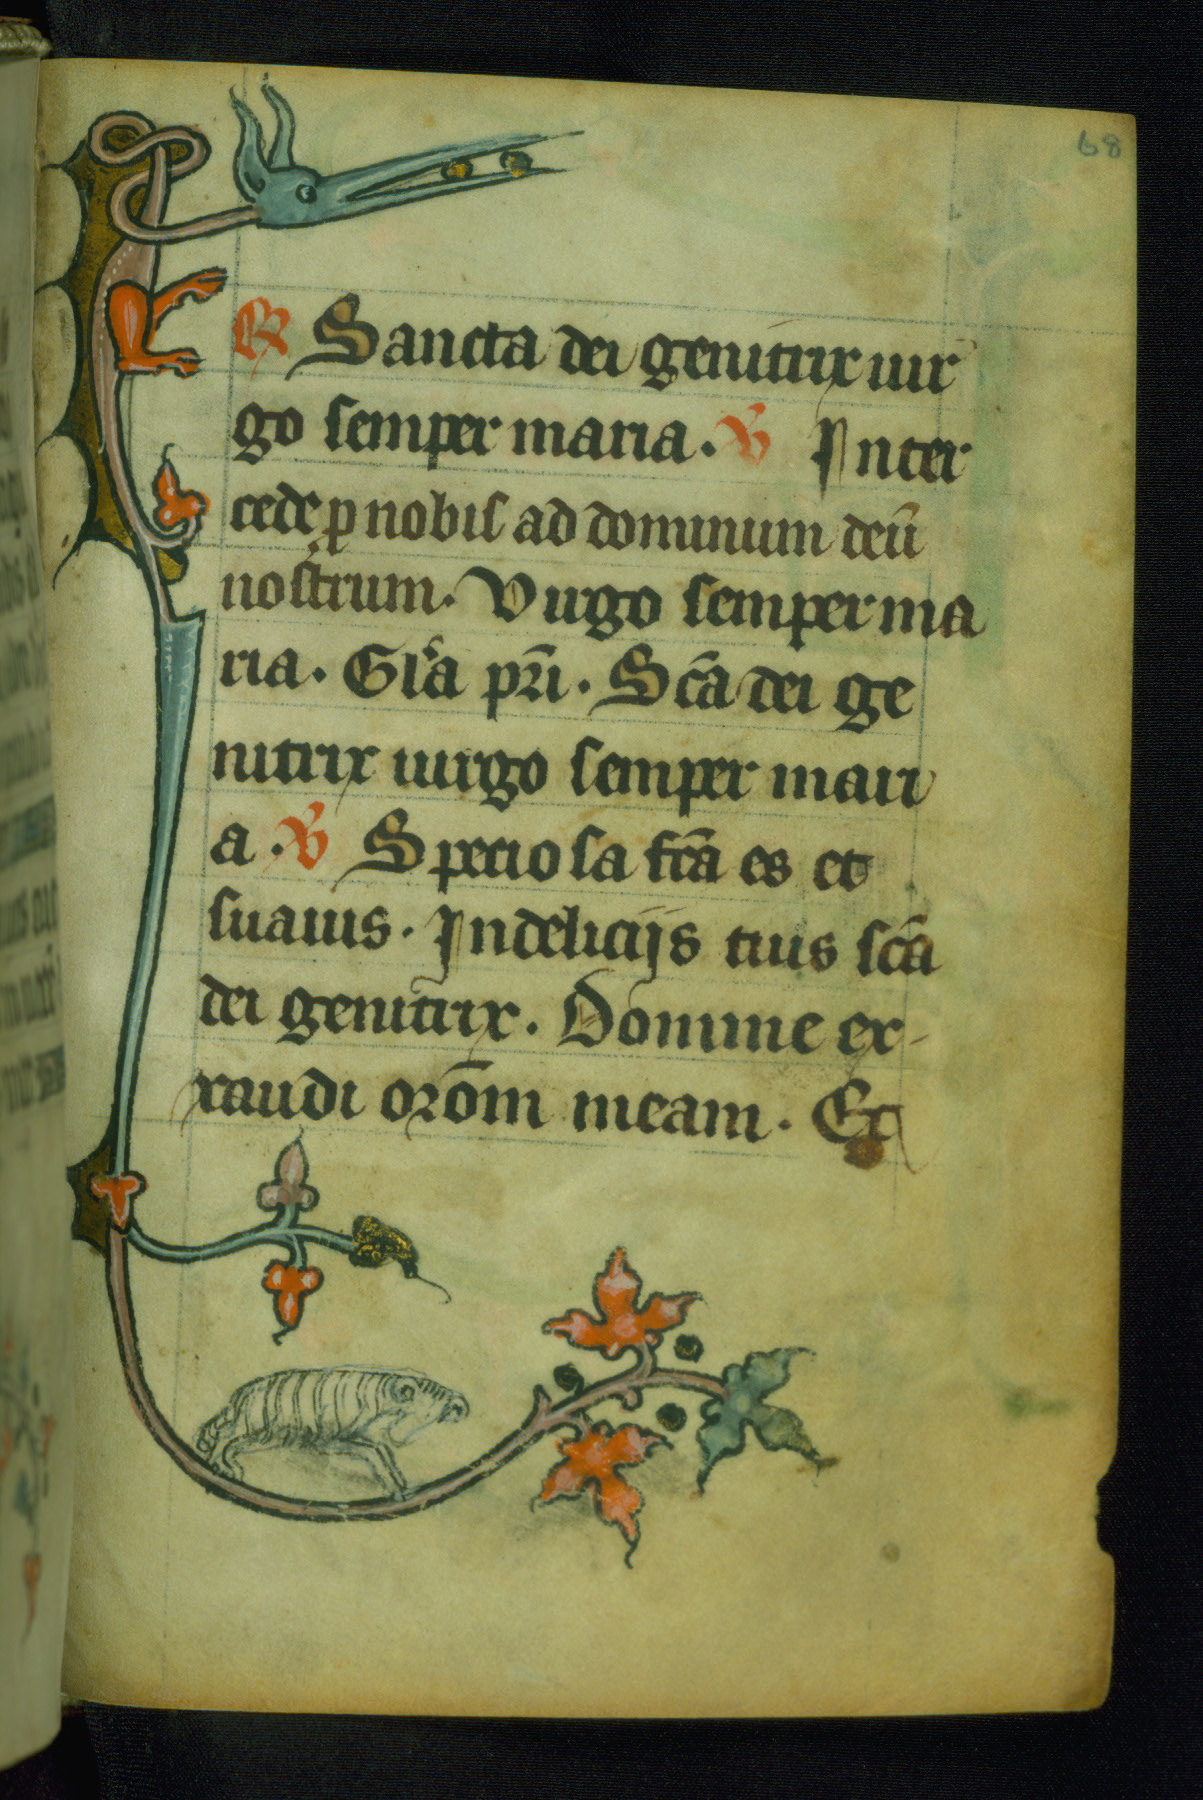 68
℟ Sancta dei genitrix uir
go semper maria. ℣ Inter
cede ꝓ nobis ad dominum deū
nostrum. Virgo semper ma
ria. Glͣa pr̄i. Sc̄a dei ge
nitrix uirgo semper mari
a. ℣ Speciosa fc̄a es et
suauis. In deliciis tuis sc̄a
dei genitrix. Domine ex-
xaudi orōm meam. Et